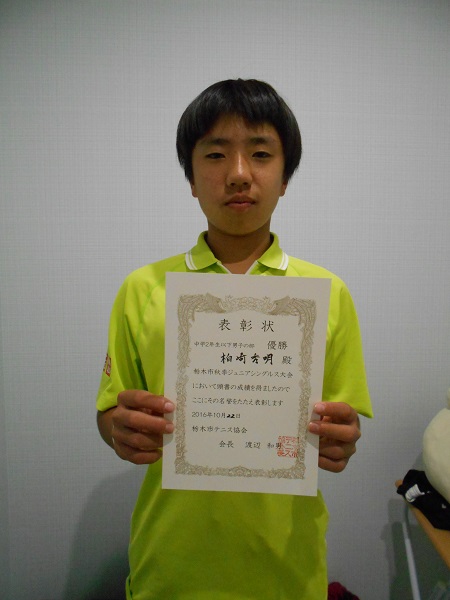 表彰状
中学2年生以下男子の部 優勝
柏崎 秀明 殿
栃木市秋季ジュニアシングルス大会
において頭書の成績を得ましたので
ここにその名誉をたたえ表彰します
2016年10月22日
栃木市テニス協会
会長 渡辺 和男